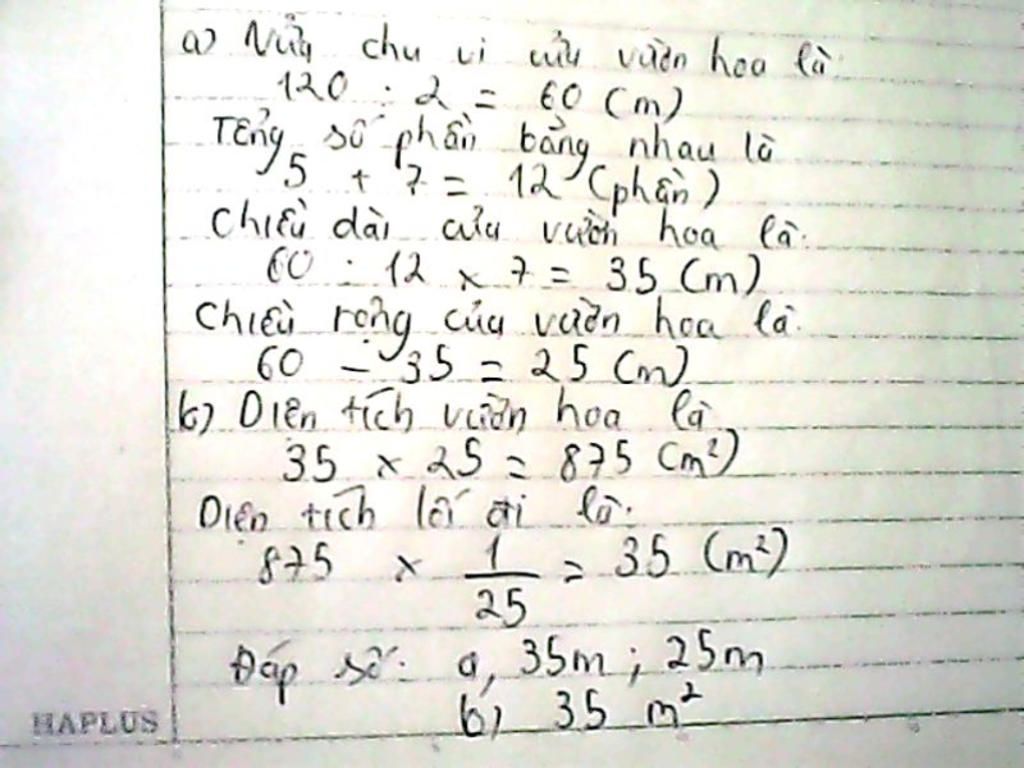 a) Nửa chu vi của vườn hoa là:
120 : 2 = 60 (m)
Tổng số phần bằng nhau là
5 + 7 = 12 (phần)
Chiều dài của vườn hoa là:
60 : 12 x 7 = 35 (m)
Chiều rộng của vườn hoa là:
60 - 35 = 25 (m)
b) Diện tích vườn hoa là
35 x 25 = 875 (m²)
Diện tích lối đi là:
875 x 1/25 = 35 (m²)
Đáp số: a, 35m ; 25m
b) 35 m²
HAPLUS